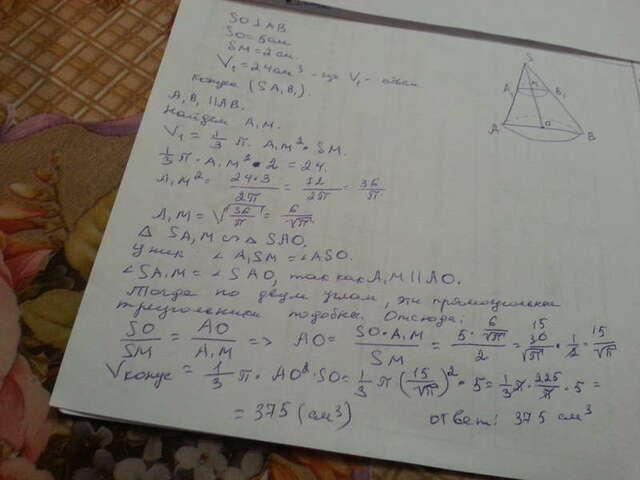 SO ⊥ AB.
SO = 5 см
SM = 2 см.
V₁ = 24 см³ - где V₁ - объем
конуса (SA₁B₁).
A₁B₁ || AB.
Найдем A₁M.
V₁ = 1/3 π · A₁M² · SM.
1/3 π · A₁M² · 2 = 24.
A₁M² = 24·3/2π = 72/2π = 36/π
A₁M = √(36/π) = 6/√π
Δ SA₁M ∾ Δ SAO.
У них: ∠A₁SM = ∠ASO.
∠SA₁M = ∠SAO, так как A₁M || AO.
Тогда по двум углам, эти прямоугольные
треугольники подобны. Отсюда:
SO/SM = AO/A₁M => AO = SO·A₁M/SM = 5·6/√π/2 = 30/√π · 1/2 = 15/√π
Vконус = 1/3 π · AO² · SO = 1/3 π (15/√π)² · 5 = 1/3 π · 225/π · 5 =
= 375 (см³) ответ: 375 см³
S
A₁ M B₁
A O B